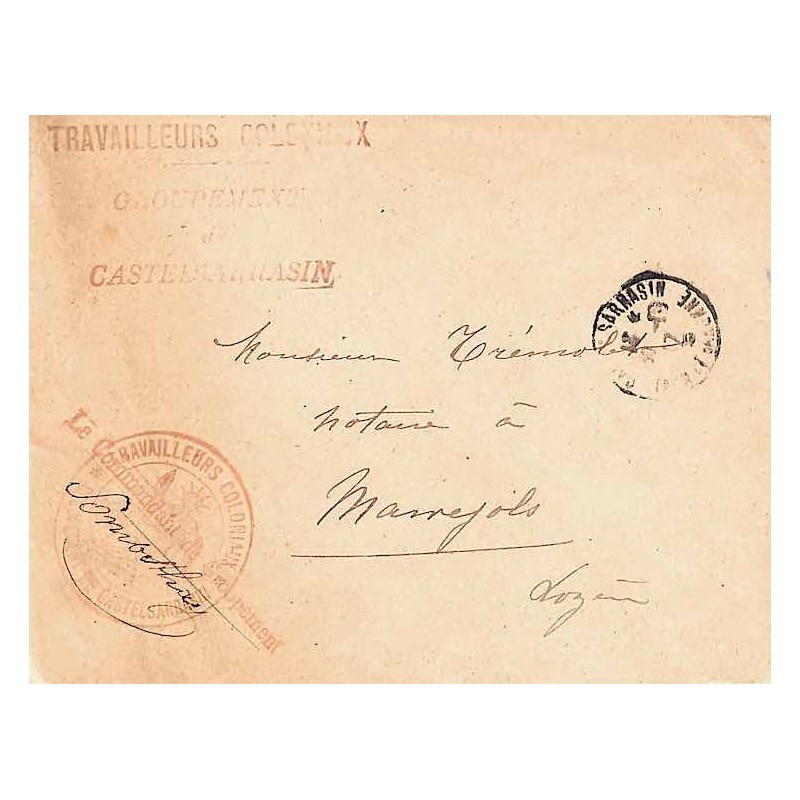 TRAVAILLEURS COLONIAUX
GROUPEMENT
de
CASTELSARRASIN
SARRASIN
Monsieur Trémolet
notaire à
Marvejols
Lozère
Le Commandant du Groupement
TRAVAILLEURS COLONIAUX
CASTELSARRASIN